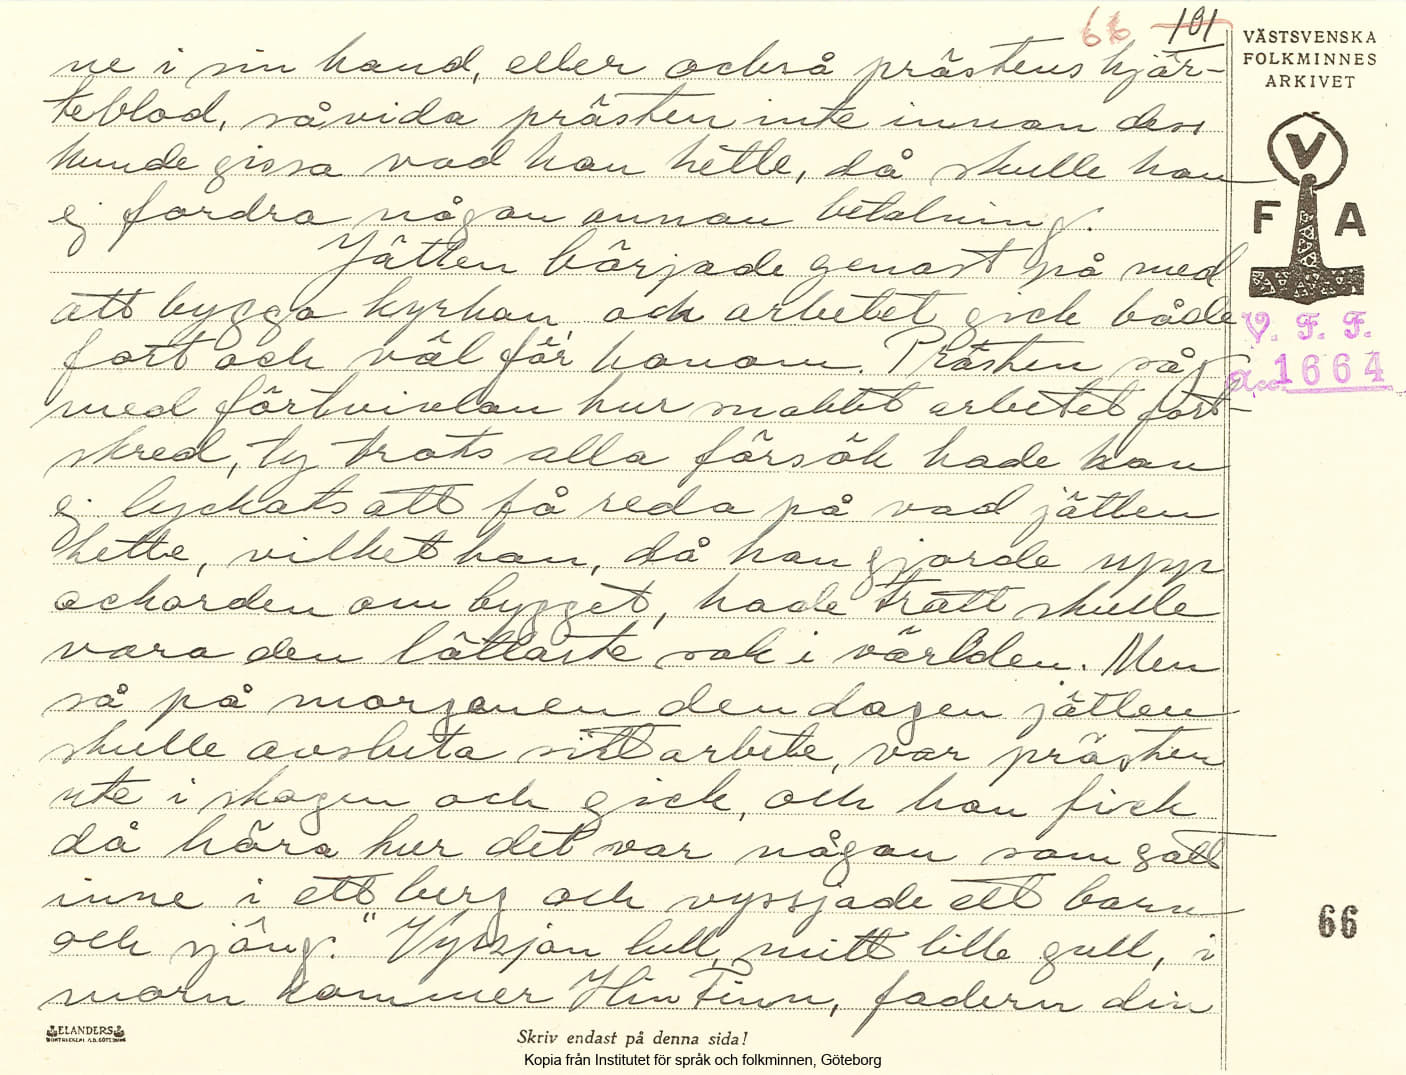 66 101
VÄSTSVENSKA
FOLKMINNES
ARKIVET
V
F A
V. F. F.
Acc. 1664
ne i sin hand, eller också prästens hjär-
teblod, såvida prästen inte innan dess
kunde gissa vad han hette, då skulle han
ej fordra någon annan betalning.
Jätten började genast på med
att bygga kyrkan, och arbetet gick både
fort och väl för honom. Prästen såg
med förtvivlan hur snabbt arbetet fort-
skred, ty trots alla försök hade han
ej lyckats att få reda på vad jätten
hette, vilket han, då han gjorde upp
ackorden om bygget, hade trott skulle
vara den lättaste sak i världen. Men
så på morgonen den dagen jätten
skulle avsluta sitt arbete, var prästen
ute i skogen och gick, och han fick
då höra hur det var någon som satt
inne i ett berg och vyssjade ett barn
och sjöng: "Vyssjan lull, mitt lille gull, i
morn kommer Hin Finn, fadern din
66
ELANDERS
BOKTRYCKERI A.B. GÖTEBORG
Skriv endast på denna sida!
Kopia från Institutet för språk och folkminnen, Göteborg